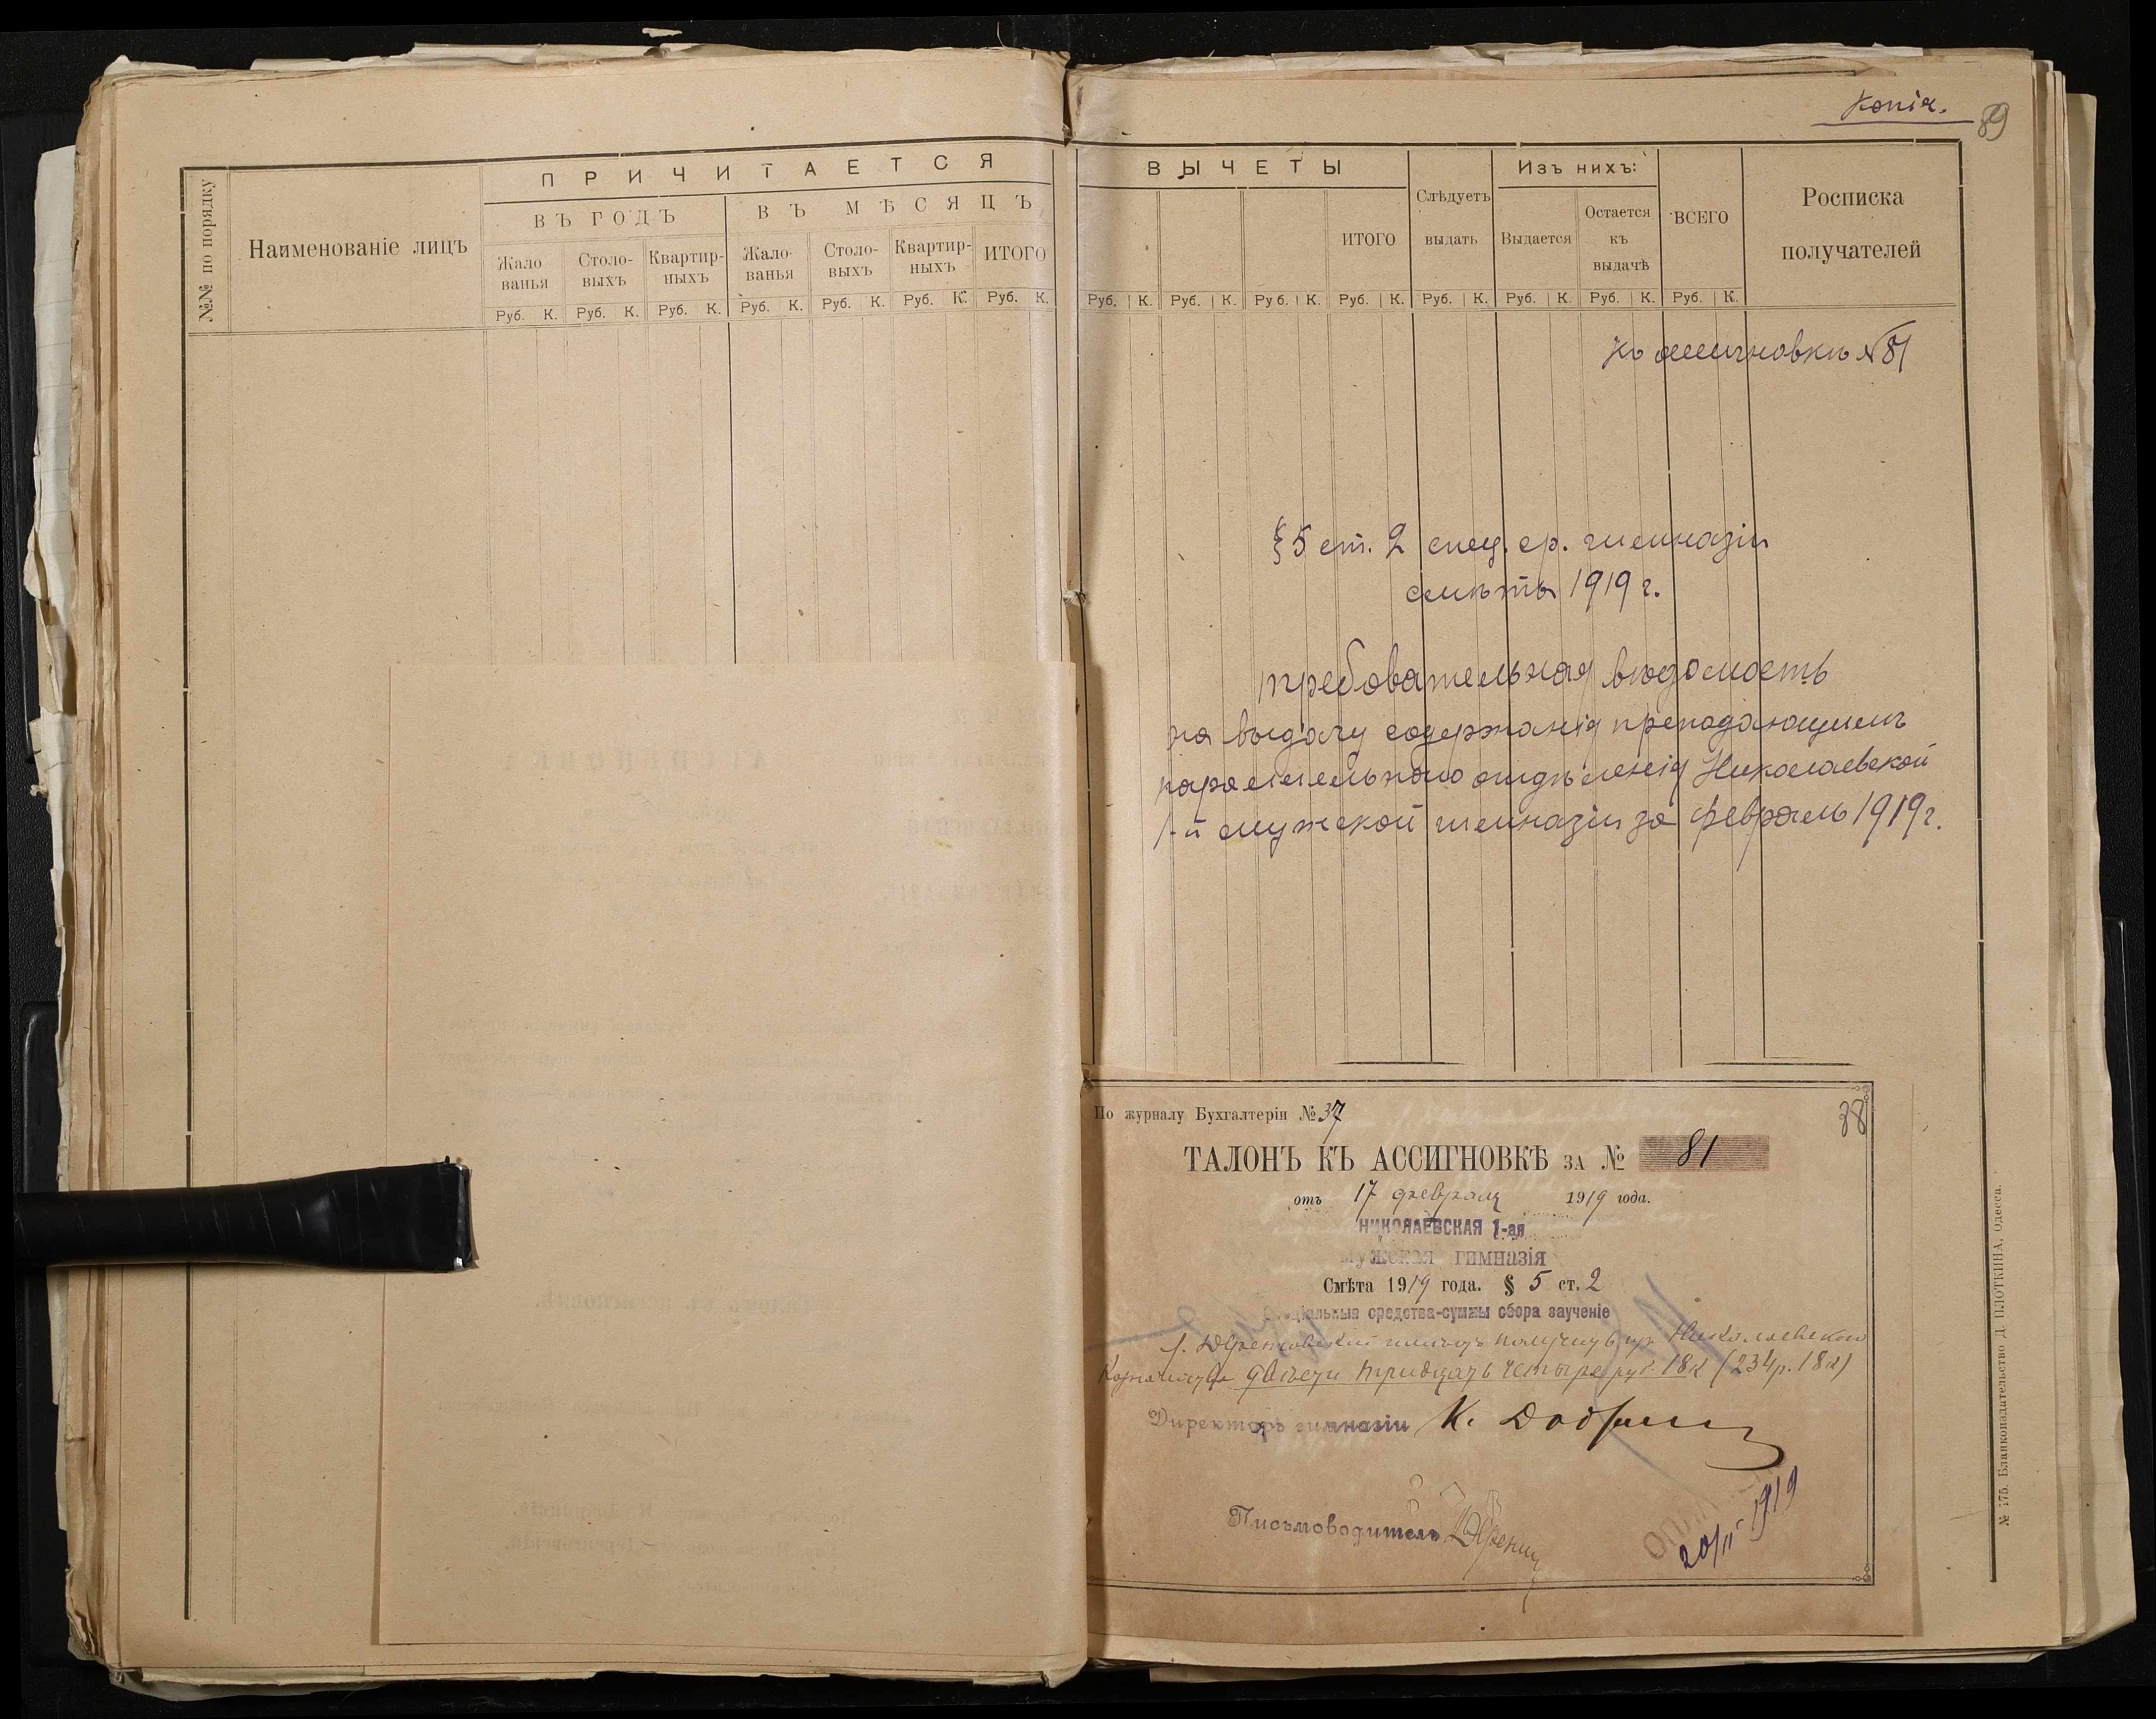 Копія.
89
№№ по порядку
Наименованіе лицъ
ПРИЧИТАЕТСЯ
ВЪ ГОДЪ
ВЪ МѢСЯЦЪ
Жало
ванья
Столо-
выхъ
Квартир-
ныхъ
Жало-
ванья
Столо-
выхъ
Квартир-
ныхъ
ИТОГО
Руб. К. Руб. К. Руб. К. Руб. К. Руб. К. Руб. К. Руб. К.
ВЫЧЕТЫ
ИТОГО
Слѣдуетъ
выдать
Изъ нихъ:
Выдается
Остается
къ
выдачѣ
ВСЕГО
Росписка
получателей
Руб. К. Руб. К. Руб. К. Руб. К. Руб. К. Руб. К. Руб. К. Руб. К.
Къ ассигновкѣ №81
§ 5 ст. 2 спец. ср. гимназіи
смѣты 1919 г.
Требовательная вѣдомость
на выдачу содержанія преподающимъ
параллельнаго отдѣленія Николаевской
1-й мужской гимназіи за февраль 1919 г.
По журналу Бухгалтеріи № 37
38
ТАЛОНЪ КЪ АССИГНОВКѢ ЗА № 81
отъ 17 февраля 1919 года.
НИКОЛАЕВСКАЯ 1-ая
мужская гимназія
Смѣта 1919 года. § 5 ст. 2
средства-суммы сбора заученіе
получить изъ Николаевскаго
Казначейства двѣсти тридцать четыре руб. 18 к (234 р. 18 к)
Директоръ гимназіи К.
Письмоводитель
20/II 1919
№ 175. Бланкоиздательство Д. ПЛОТКИНА, Одесса.